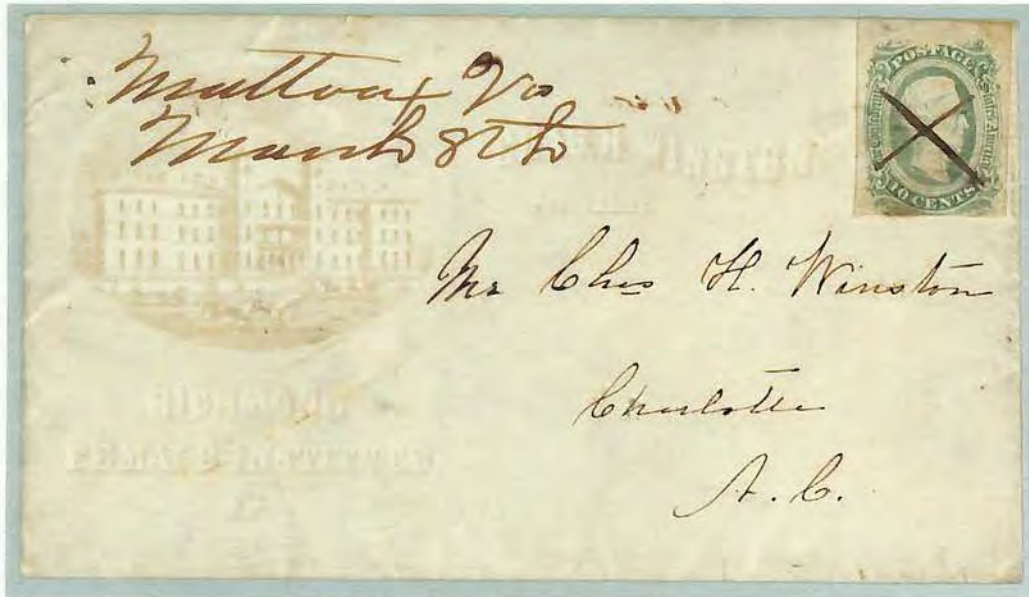 Mattoax Va
March 8th
POSTAGE
TEN CENTS
Mr Chas H. Winston
Charlotte
N. C.
RICHMOND
FEMALE INSTITUTE